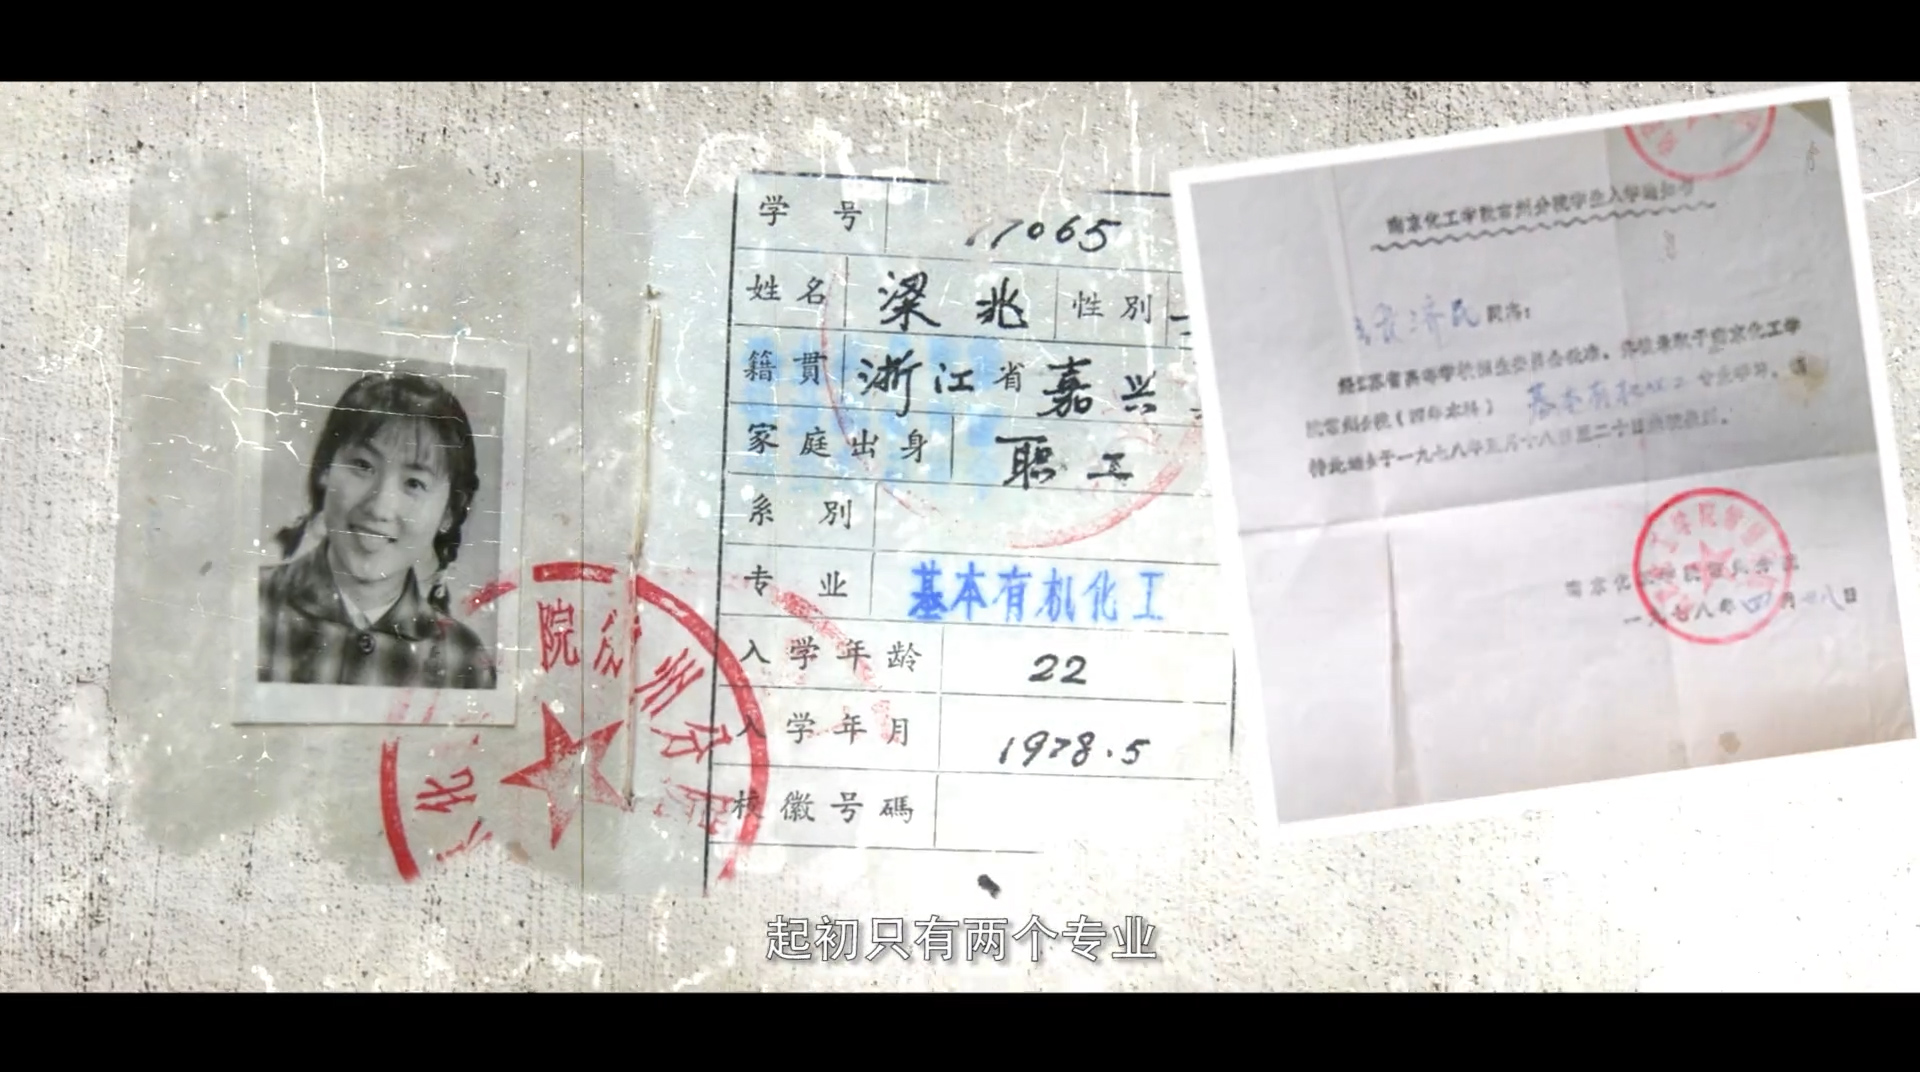 学 号 17065
姓 名 梁 兆 性 别
籍 贯 浙 江 省 嘉 兴
家 庭 出 身 职 工
系 别
专 业 基本有机化工
入 学 年 龄 22
入 学 年 月 1978.5
校 徽 号 碼
院 常 州 分 院
南京化工学院常州分院学生入学通知书
济民 同志：
经江苏省高等学校招生委员会批准，
录取于南京化工学
院常州分院（四年本科） 基本有机化工 专业学习。请
持此通知于一九七八年五月十八日至二十日
南京化工学院常州分院
一九七八年四月廿八日
起初只有两个专业